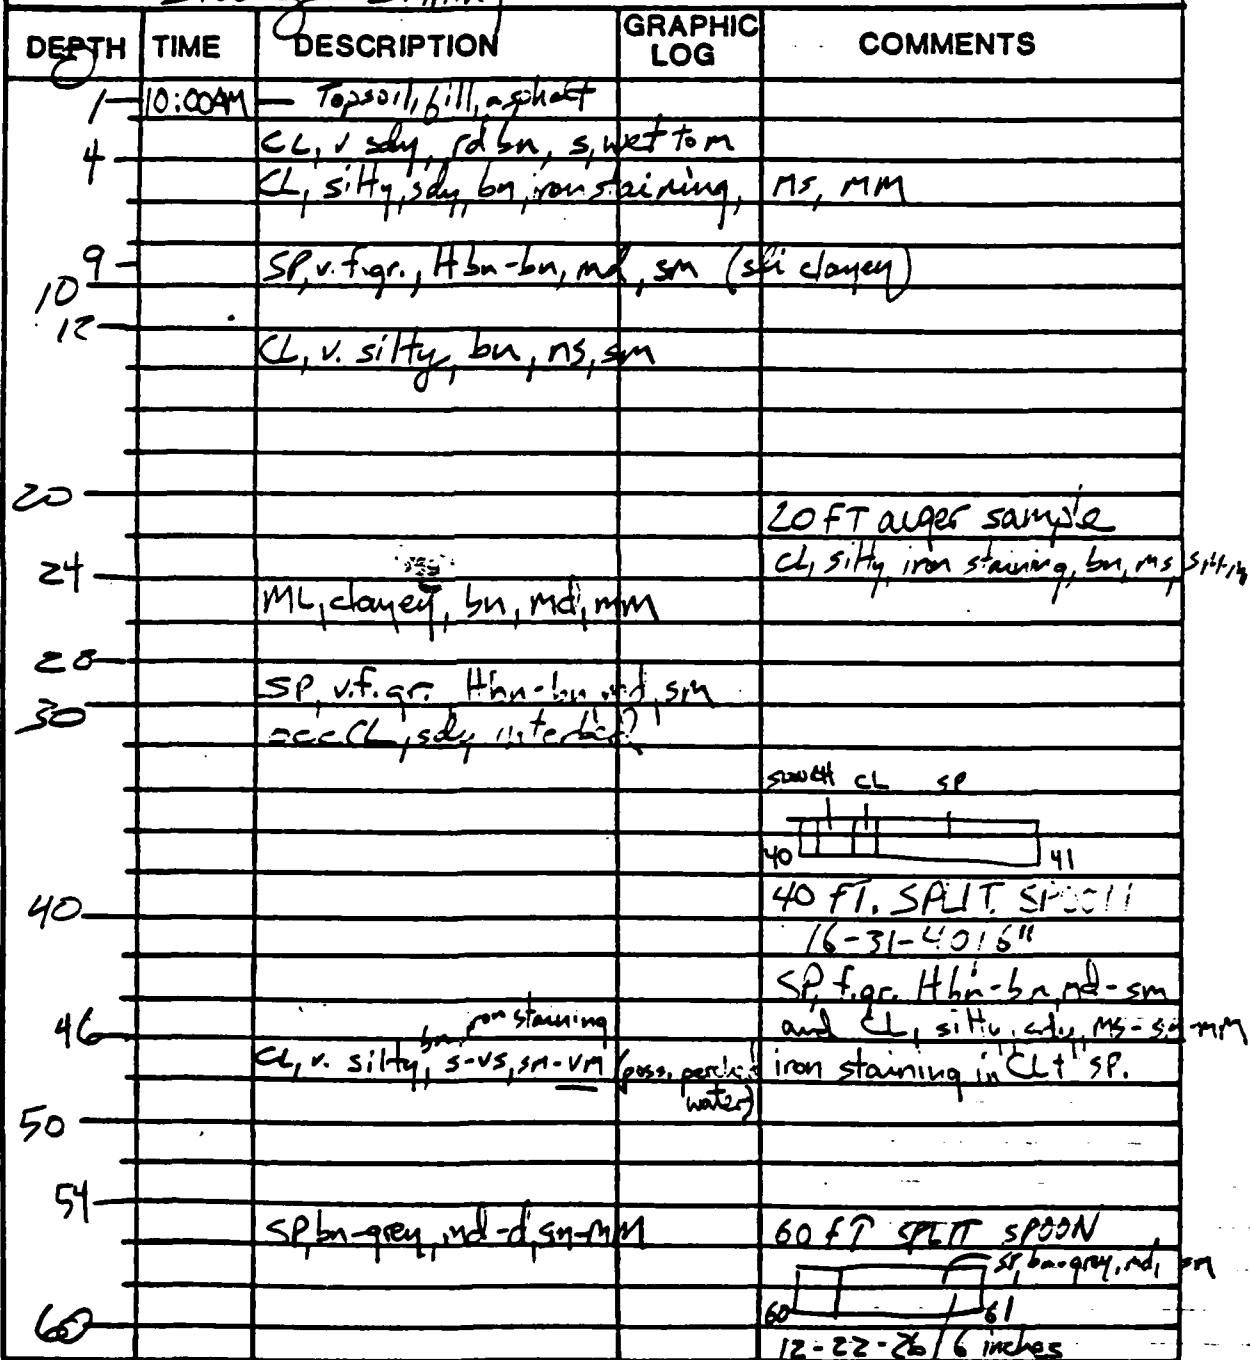 DEPTH TIME DESCRIPTION GRAPHIC LOG COMMENTS
1 10:00AM — Topsoil, fill, asphalt
CL, v sdy, rd bn, s, wet to m
4
CL, silty, sdy, bn, iron staining, ms, MM
9
SP, v.f.gr., ltbn-bn, md, sm (sli clayey)
10
12
CL, v. silty, bn, ms, sm
20
20 FT auger sample
CL, silty, iron staining, bn, ms,
24
ML, clayey, bn, md, mm
28
SP, v.f.gr. ltbn-bn, md, sm
30
occ CL, sdy interbed
CL SP
40 41
40 FT. SPLIT SPOON
40
16-31-40/6"
SP, f.gr. ltbn-bn, md-sm
46 bn, iron staining and CL, silty, sdy, ms-sm-MM
CL, v. silty, s-vs, sm-vm (poss. perched water) iron staining in CL + SP.
50
54
SP, bn-grey, md-d, sm-MM 60 FT SPLIT SPOON
SP, bn-grey, md, sm
60 61
60
12-22-26/6 inches